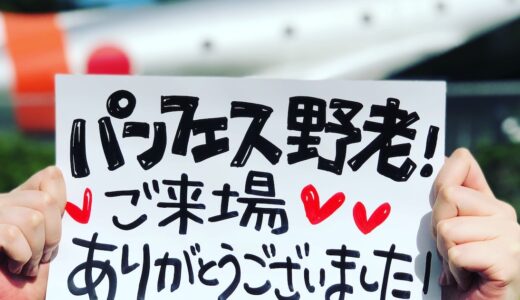 パンフェス野老!
ご来場
ありがとうございました!